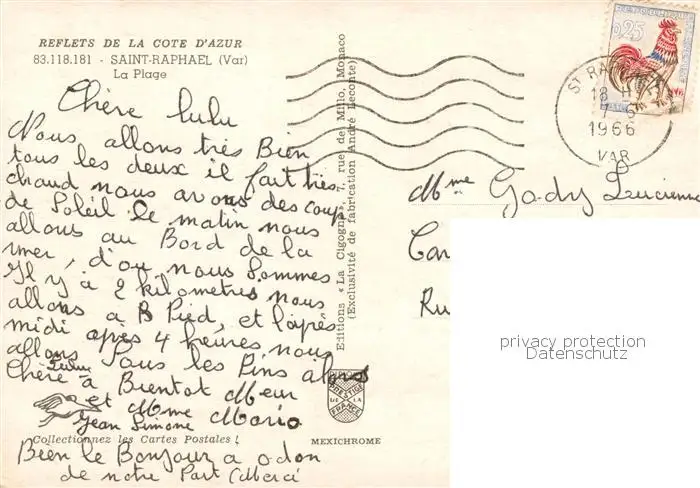 REFLETS DE LA COTE D'AZUR
83.118.181 - SAINT-RAPHAEL (Var)
La Plage
Chère lulu
Nous allons très Bien
tous les deux il fait très
chaud nous avons des coup
de Soleil le matin nous
allons au Bord de la
mer, d'ou nous Sommes
Il y à 2 kilometres nous
allons a Pied, et l'après
midi après 4 heures nous
allons Sous les Pins alors
Chère Lulu à Bientot Meur
et Mme Mario
Jean Simone
Collectionnez les Cartes Postales !
Bien le Bonjour a odon
de notre Part Merci
Editions « La Cigogne », 7, rue de Millo, Monaco
(Exclusivité de fabrication André Leconte)
PRESTIGE
DE LA
FRANCE
MEXICHROME
0,25
ST RA
18 H
1966
VAR
Mme Gady Lucienne
Ru
privacy protection
Datenschutz